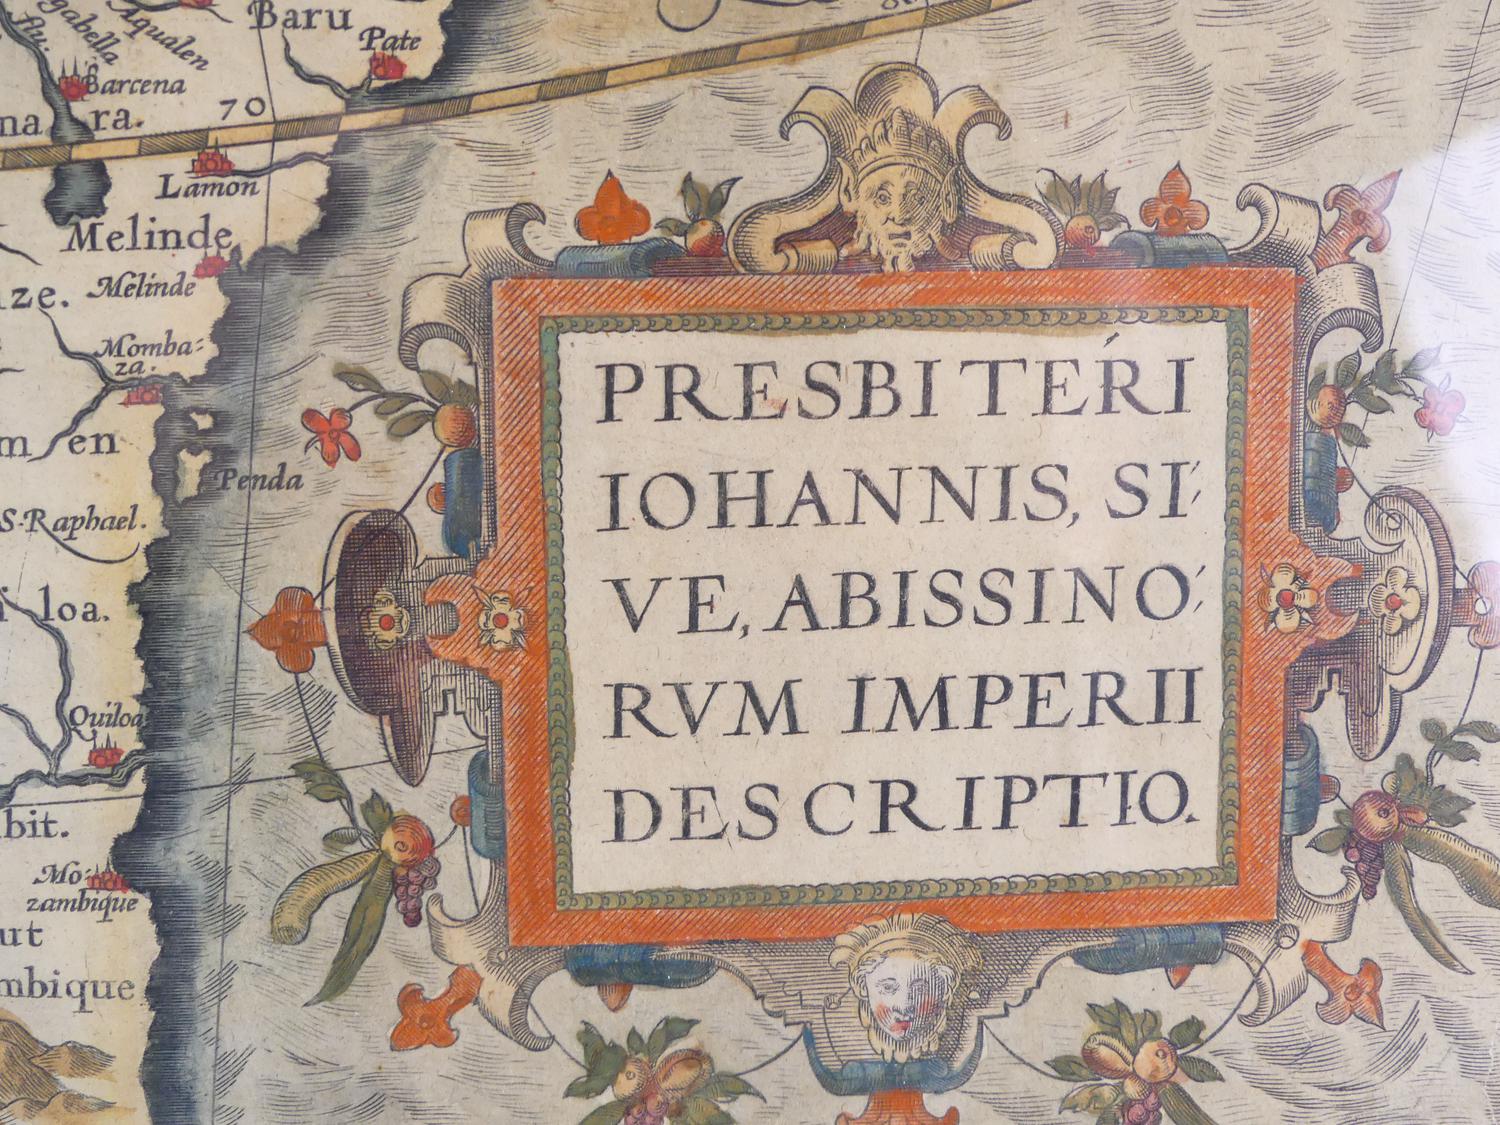 Baru
gabella
flu.
Aqualen
Pate
Barcena
70
na ra.
Lamon
Melinde
ze. Melinde
Momba-
za.
m en
Penda
S. Raphael.
loa.
Quiloa
bit.
Mo-
zambique
ut
mbique
PRESBITERI
IOHANNIS, SI-
VE, ABISSINO-
RVM IMPERII
DESCRIPTIO.